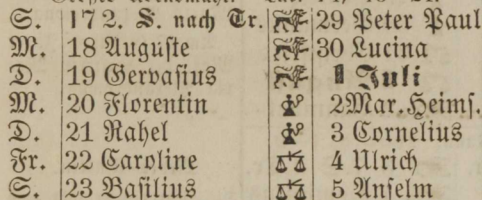 S. 17 2. S. nach Tr. 29 Peter Paul
M. 18 Auguste 30 Lucina
D. 19 Gervasius 1 Juli
M. 20 Florentin 2 Mar. Heims.
D. 21 Rahel 3 Cornelius
Fr. 22 Caroline 4 Ulrich
S. 23 Basilius 5 Anselm